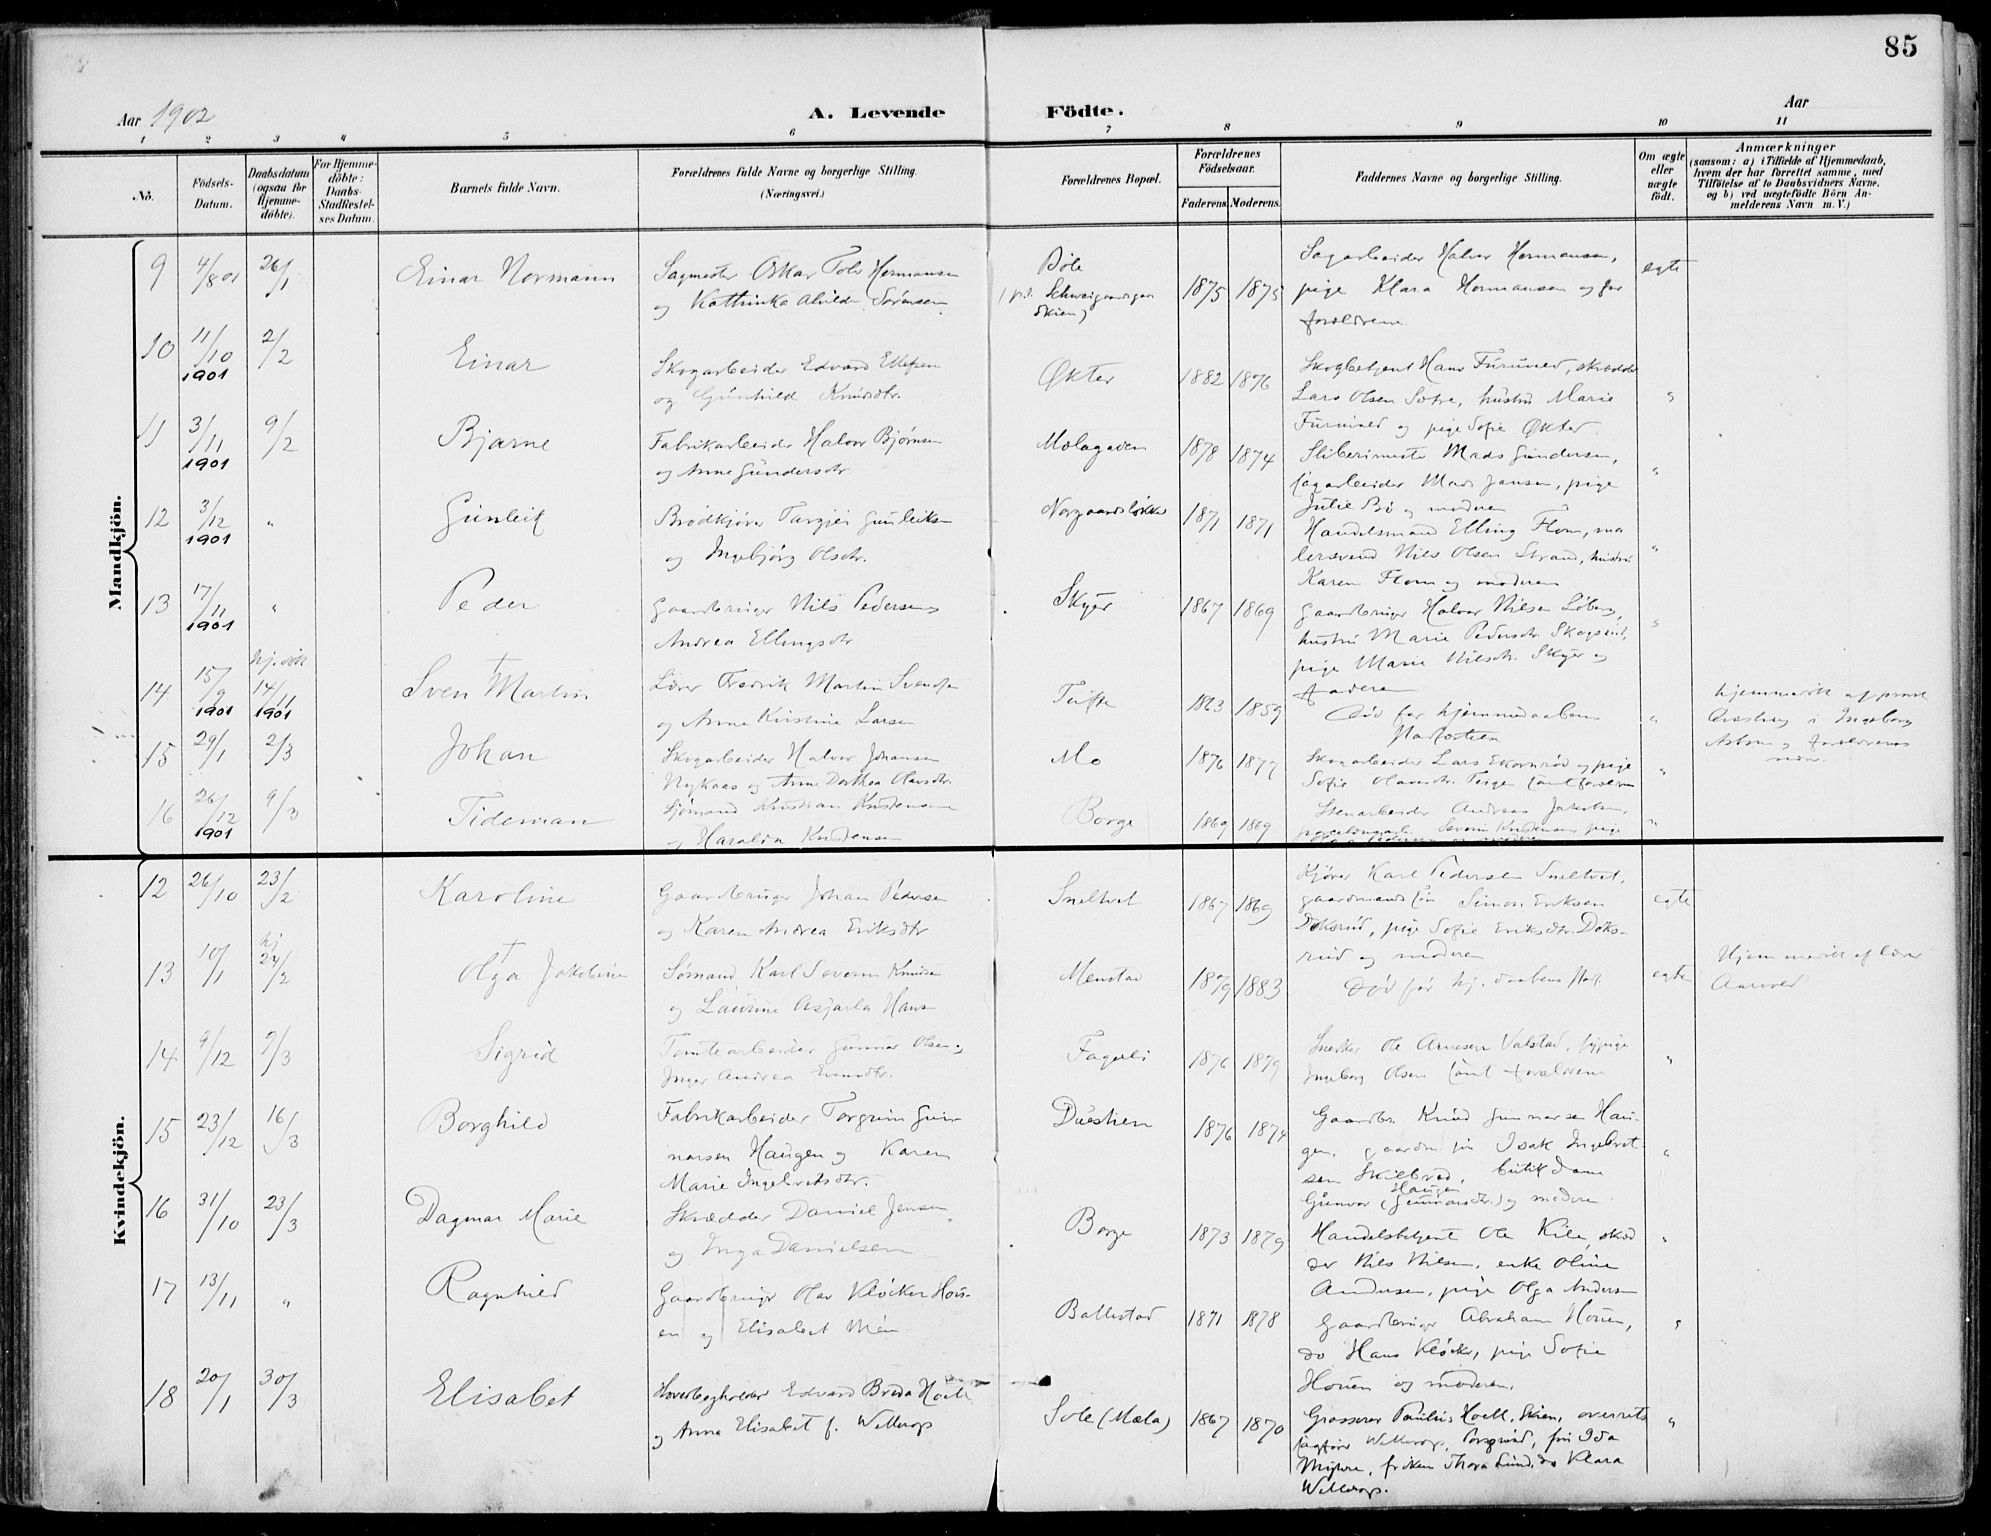 85
Aar 1902 A. Levende Födte. Aar
1 2 3 4 5 6 7 8 9 10 11
No. Födsels-Datum. Daabsdatum (ogsaa for Hjemmedöbte). For Hjemmedöbte: Daabs-Stadfæstelses Datum. Barnets fulde Navn. Forældrenes fulde Navne og borgerlige Stilling. (Næringsvei.) Forældrenes Bopæl. Forældrenes Födselsaar. Faderens Moderens Faddernes Navne og borgerlige Stilling. Om ægte eller uægte födt. Anmærkninger (saasom: a) i Tilfælde af Hjemmedaab, hvem der har forrettet samme, med Tilföielse af to Daabsvidners Navne, og b) ved uægtefödte Börn Anmelderens Navn m. V.)
Mandkjön.
9 4/8 01 26/1 Einar Normann Sagmester Oskar Hermansen
og Kathinka Alvilde Sørensen
Böle
Skien)
1875 1875
Sagarbeider Halvor Hermansen,
pige Klara Hermansen og
forældrene
egte
10 11/10 1901 2/2 Einar Skogarbeider Edvard Ellefsen
og Gunhild Knudsdtr.
Økter 1882 1876
Skogbetjent Hans Furuvald, skrædder
Lars Olsen Sætre, hustru Marie
Furuvald og pige Sofie Økter
"
11 3/11 1901 9/2 Bjarne Fabrikarbeider Halvor Bjørnsen
og Anne Gundersdtr
Mælagaden 1878 1874
Sliberimester Mads Gundersen,
sagarbeider Mads Jansen, pige
Julie Bö og moderen
"
12 3/12 1901 " Gunleik Brödkjører Targjei Gunleiksen
og Ingebjörg Olsdtr.
Norgaardsløkke 1871 1871
Handelsmand Elling Flom, ma
lersvend Nils Olsen Strand, hustru
Karen Flom og moderen
"
13 17/11 1901 " Peder Gaardbruger Nils Pedersen og
Andrea Ellingsdtr
Skyer 1867 1869
Gaardbruger Halvor Nilsen Løberg,
hustru Marie Pedersdtr. Skogsrud,
pige Marie Nilsdtr. Skyer og
faderen
"
14 15/9 1901 hj. døbt 14/11 1901 Sven Martin Fredrik Martin Svendsen
og Anne Kirstine Larsen
Tufte 1863 1859
Död før hjemmedaabens
stadfæstelse
"
hjemmedöbt af
i Ingeborg
og forældrenes
nærv.
15 29/1 2/3 Johan Skogarbeider Halvor Johansen
Nykaas og Anne Dorthea Olavsdtr.
Mo 1876 1877
Skogarbeider Lars Ekornrød og pige
Sofie Olavsdtr. samt forældrene
"
16 26/12 1901 9/3 Tideman Sjømand Kristian Knudsen
og Haralda Knudsen
Borge 1869 1869
Stenarbeider Andreas Jakobsen,
Severin Knudsen, pige
"
Kvindekjön.
12 26/10 23/2 Karoline Gaardbruger Johan Pedersen
og Karen Andrea Eriksdtr
Sneltvet 1867 1869
Kjører Karl Pedersen Sneltvet,
gaardmandssøn Simon Eriksen
Doksrud, pige Sofie Eriksdtr. Doks-
rud og moderen
egte
13 10/1 hj 24/2 Olga Jakobine Sømand Karl Severin Knudsen
og Laurine Hans
Menstad 1879 1883
Död før hj. daabens stat.
egte
Hjemmedöbt af lærer
Aarvold
14 9/12 9/3 Sigrid Tomtearbeider Gunnar Olsen og
Inger Andrea
Fagerli 1876 1879
Snekker Ole Arnesen Valstad, pige
Ingeborg Olsen samt forældrene
"
15 23/12 16/3 Borghild Fabrikarbeider Torgrim Gun-
narsen Haugen og Karen
Marie Ingebretsdtr.
Duestien 1876 1874
Gaardbr. Knud Gunnarsen Hau-
gen, gaardm. søn Isak Ingebret-
sen Skilbred, butikdame
Haugen
Gunvor (Gunnarsdtr.) og moderen
"
16 31/10 23/3 Dagmar Marie Skrædder Daniel Jensen
og Inga Danielsen
Borge 1873 1879
Handelsbetjent Ole Kile, skræd
der Nils Nilsen, enke Oline
Andersen, pige Olga Andersen
"
17 13/11 " Ragnhild Gaardbruger Olav Kløcker Hou-
en og Elisabet Meen
Ballestad 1871 1878
Gaardbruger Abraham Houen,
do Hans Kløcker, pige Sofie
Houen og moderen.
"
18 20/1 30/3 Elisabet Hovedbogholder Edvard Breda Hoell
og Anna Elisabet f. Wellerop
Sole (Mæla) 1867 1870
Grosserer Paulus Hoell, Skien, overrets
sagfører Wellerop, Porsgrund, fru Ida
Myhre, frøken Thora Lund, do Klara
Wellerop.
"